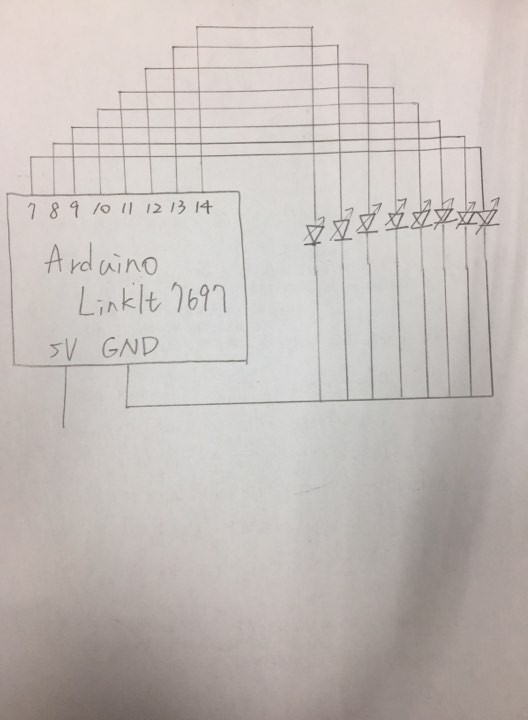 7 8 9 10 11 12 13 14
Arduino
LinkIt 7697
5V GND